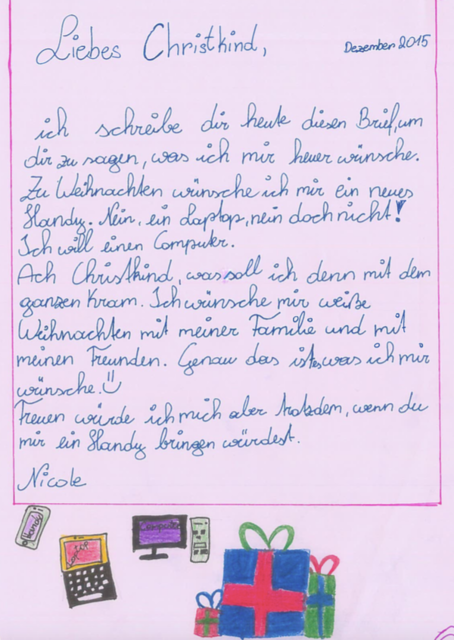 Liebes Christkind,
Dezember 2015
ich schreibe dir heute diesen Brief, um
dir zu sagen, was ich mir heuer wünsche.
Zu Weihnachten wünsche ich mir ein neues
Handy. Nein, ein Laptop, nein doch nicht!
Ich will einen Computer.
Ach Christkind, was soll ich denn mit dem
ganzen Kram. Ich wünsche mir weiße
Weihnachten mit meiner Familie und mit
meinen Freunden. Genau das ist es was ich mir
wünsche.
Freuen würde ich mich aber trotzdem, wenn du
mir ein Handy bringen würdest.
Nicole
Handy
Computer